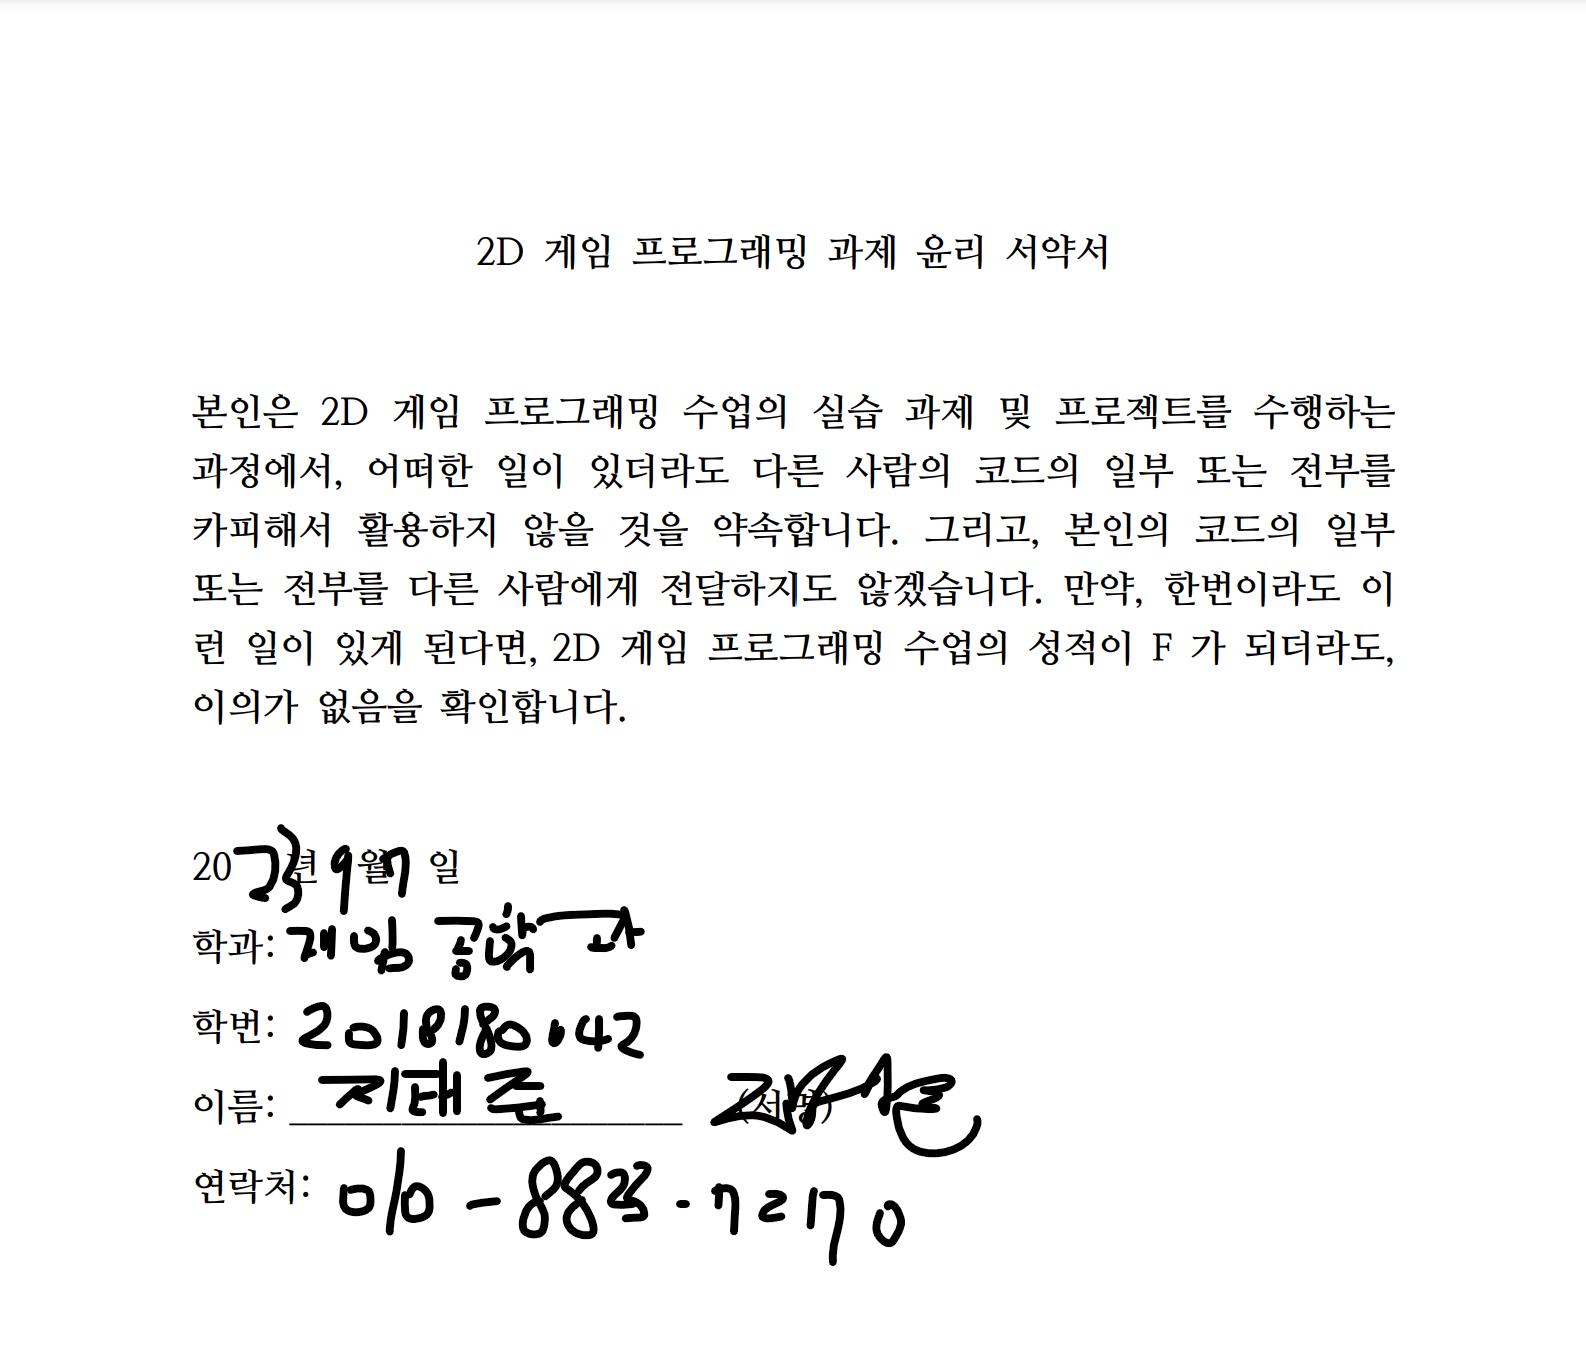 2D 게임 프로그래밍 과제 윤리 서약서
본인은 2D 게임 프로그래밍 수업의 실습 과제 및 프로젝트를 수행하는
과정에서, 어떠한 일이 있더라도 다른 사람의 코드의 일부 또는 전부를
카피해서 활용하지 않을 것을 약속합니다. 그리고, 본인의 코드의 일부
또는 전부를 다른 사람에게 전달하지도 않겠습니다. 만약, 한번이라도 이
런 일이 있게 된다면, 2D 게임 프로그래밍 수업의 성적이 F 가 되더라도,
이의가 없음을 확인합니다.
2023년 9월 7일
학과: 게임공학과
학번: 2018180042
이름: 지태준 (서명)
연락처: 010-88